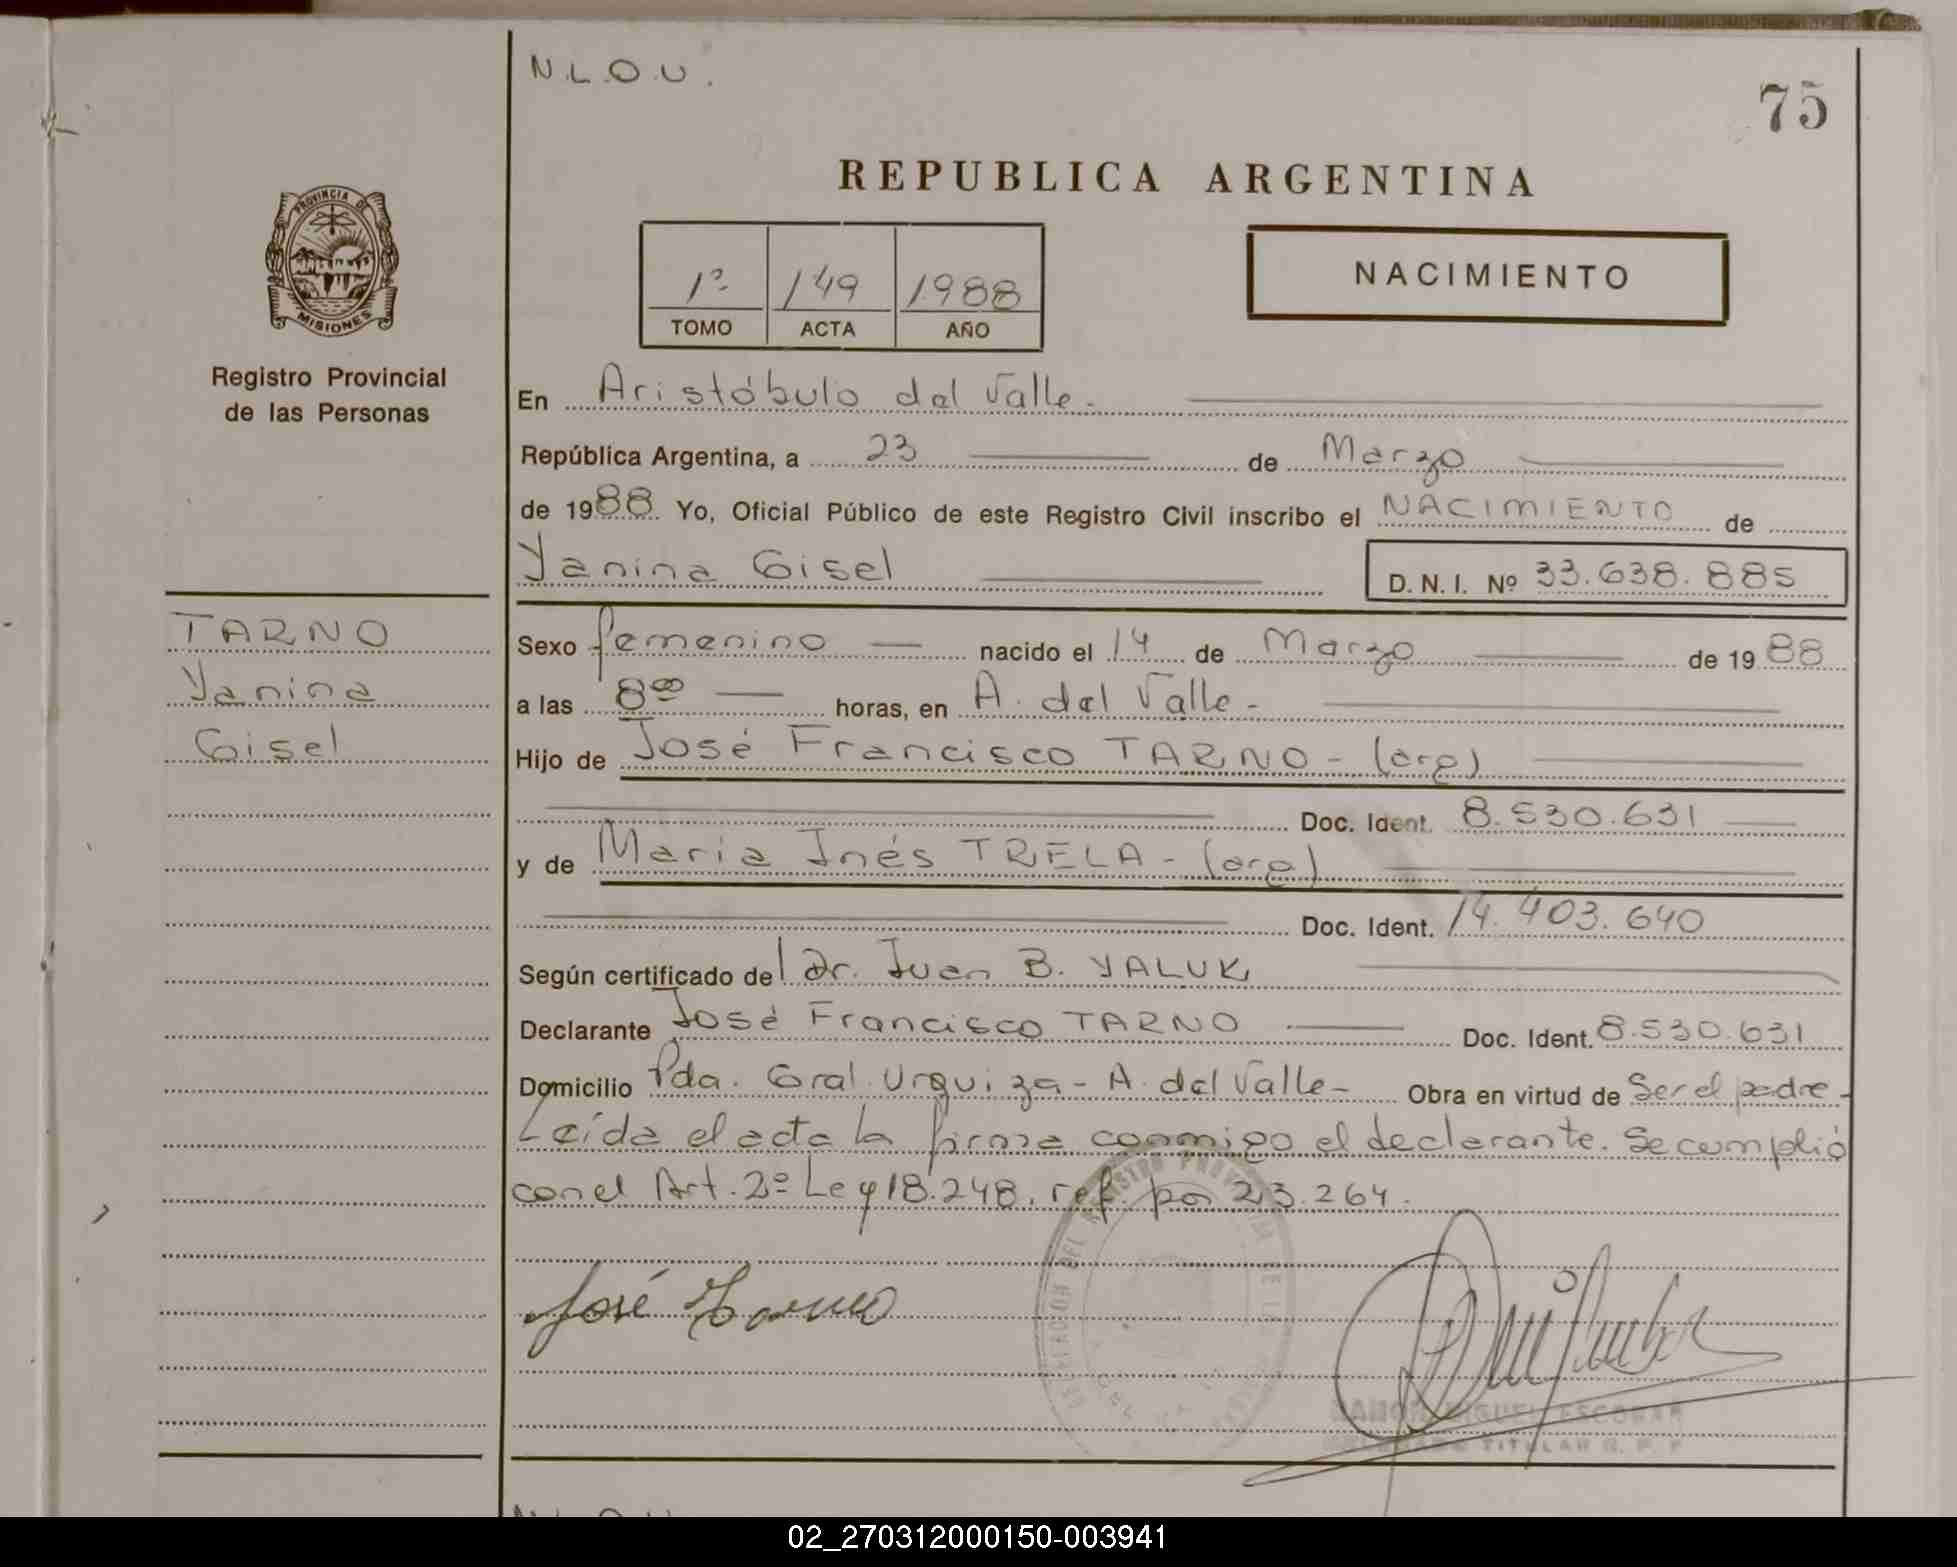 N.L.O.U.
75
REPUBLICA ARGENTINA
PROVINCIA DE
MISIONES
1º 149 1988
TOMO ACTA AÑO
NACIMIENTO
Registro Provincial
de las Personas
En Aristóbulo del Valle.
República Argentina, a 23 de Marzo
de 1988. Yo, Oficial Público de este Registro Civil inscribo el NACIMIENTO de
Yanina Gisel D.N.I. Nº 33.638.885
TARNO
Yanina
Gisel
Sexo femenino nacido el 14 de Marzo de 1988
a las 8⁰⁰ horas, en A. del Valle -
Hijo de José Francisco TARNO - (arg)
Doc. Ident. 8.530.631
y de María Inés TRELA - (arg)
Doc. Ident. 14.403.640
Según certificado del Dr. Juan B. YALUK
Declarante José Francisco TARNO Doc. Ident. 8.530.631
Domicilio Pda. Gral. Urquiza - A. del Valle - Obra en virtud de Ser el padre -
Leída el acta la firma conmigo el declarante. Se cumplió
con el Art. 2º Ley 18.248. ref. por 23.264.
José Tarno
RAMON MIGUEL ESCOBAR
TITULAR R. P. P
02_270312000150-003941